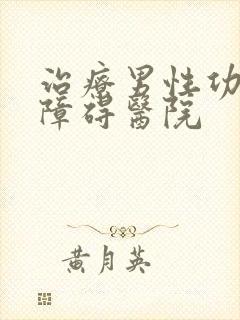 治療男性功
障碍醫院
黄月英